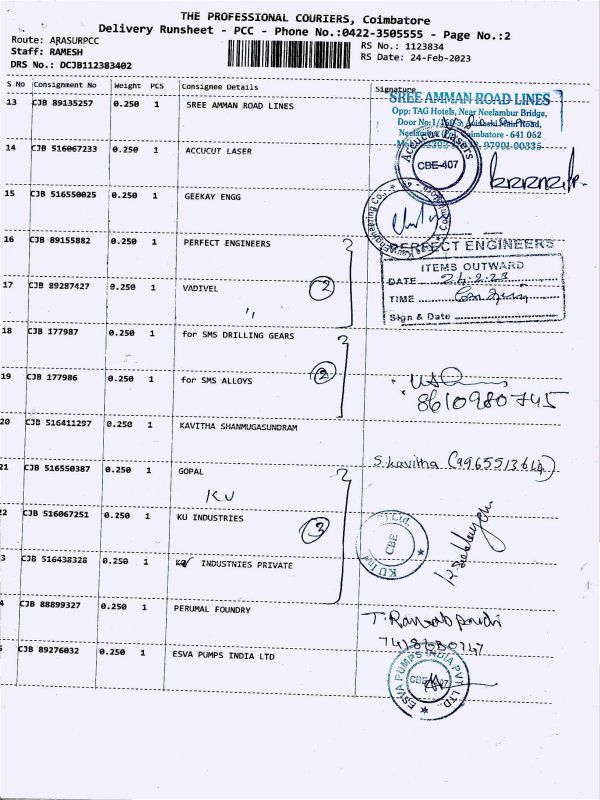 THE PROFESSIONAL COURIERS, Coimbatore
Delivery Runsheet - PCC - Phone No.:0422-3505555 - Page No.:2
Route: ARASURPCC
Staff: RAMESH
DRS No.: DCJB112383402
RS No.: 1123834
RS Date: 24-Feb-2023
S No Consignment No Weight PCS Consignee Details Signature
13 CJB 89135257 0.250 1 SREE AMMAN ROAD LINES
SREE AMMAN ROAD LINES
Opp: TAG Hotels, Near Neelambur Bridge,
Coimbatore - 641 062
97901-00335
14 CJB 516067233 0.250 1 ACCUCUT LASER
Accucut Lasers
CBE-407
15 CJB 516550025 0.250 1 GEEKAY ENGG
Engineering Co.,
16 CJB 89155882 0.250 1 PERFECT ENGINEERS
PERFECT ENGINEERS
ITEMS OUTWARD
DATE 24.2.23
TIME
Sign & Date
17 CJB 89287427 0.250 1 VADIVEL
2
18 CJB 177987 0.250 1 for SMS DRILLING GEARS
2
19 CJB 177986 0.250 1 for SMS ALLOYS
8610980745
20 CJB 516411297 0.250 1 KAVITHA SHANMUGASUNDRAM
S.kavitha
21 CJB 516550387 0.250 1 GOPAL
KU
2 CJB 516067251 0.250 1 KU INDUSTRIES
3
CBE
3 CJB 516438328 0.250 1 INDUSTNIES PRIVATE
4 CJB 88899327 0.250 1 PERUMAL FOUNDRY
5 CJB 89276032 0.250 1 ESVA PUMPS INDIA LTD
ESVA PUMPS INDIA PVT LTD.